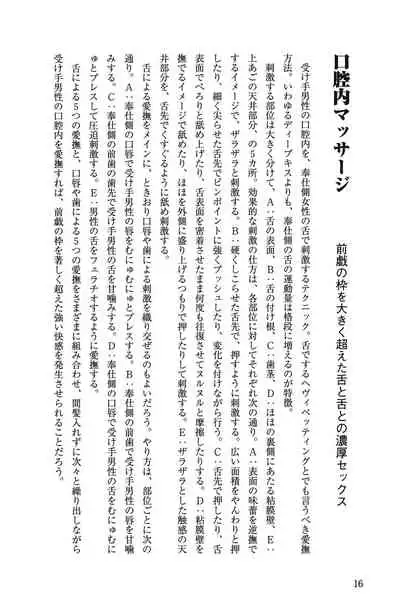 口腔内マッサージ
前戯の枠を大きく超えた舌と舌との濃厚セックス
受け手男性の口腔内を、奉仕側女性の舌で刺激するテクニック。舌でするヘヴィペッティングとでも言うべき愛撫
方法。いわゆるディープキスよりも、奉仕側の舌の運動量は格段に増えるのが特徴。
刺激する部位は大きく分けて、A：舌の表面、B：舌の付け根、C：歯茎、D：ほほの裏側にあたる粘膜壁、E：
上あごの天井部分、の5カ所。効果的な刺激の仕方は、各部位に対してそれぞれ次の通り。A：表面の味蕾を逆撫で
するイメージで、ザラザラと刺激する。B：硬くしこらせた舌先で、押すように刺激する。広い面積をやんわりと押
したり、細く尖らせた舌先でピンポイントに強くプッシュしたり、変化を付けながら行う。C：舌先で押したり、舌
表面でべろりと舐め上げたり、舌表面を密着させたまま何度も往復させてヌルヌルと摩擦したりする。D：粘膜壁を
撫でるイメージで舐めたり、ほほを外側に盛り上げるつもりで押したりして刺激する。E：ザラザラとした触感の天
井部分を、舌先でくすぐるように刺激する。
舌による愛撫をメインに、ときおり口唇や歯による刺激を織り交ぜるのもよいだろう。やり方は、部位ごとに次の
通り。A：奉仕側の口唇で受け手男性の唇をむにゅむにゅとプレスする。B：奉仕側の前歯で受け手男性の唇を甘噛
みする。C：奉仕側の前歯の歯先で受け手男性の舌を甘噛みする。D：奉仕側の口唇で受け手男性の舌をむにゅむに
ゅとプレスして圧迫刺激する。E：男性の舌をフェラチオするように愛撫する。
舌による5つの愛撫と、口唇や歯による5つの愛撫をさまざまに組み合わせ、間髪入れずに次々と繰り出しながら
受け手男性の口腔内を愛撫すれば、前戯の枠を著しく超えた強い快感を発生させられることだろう。
16